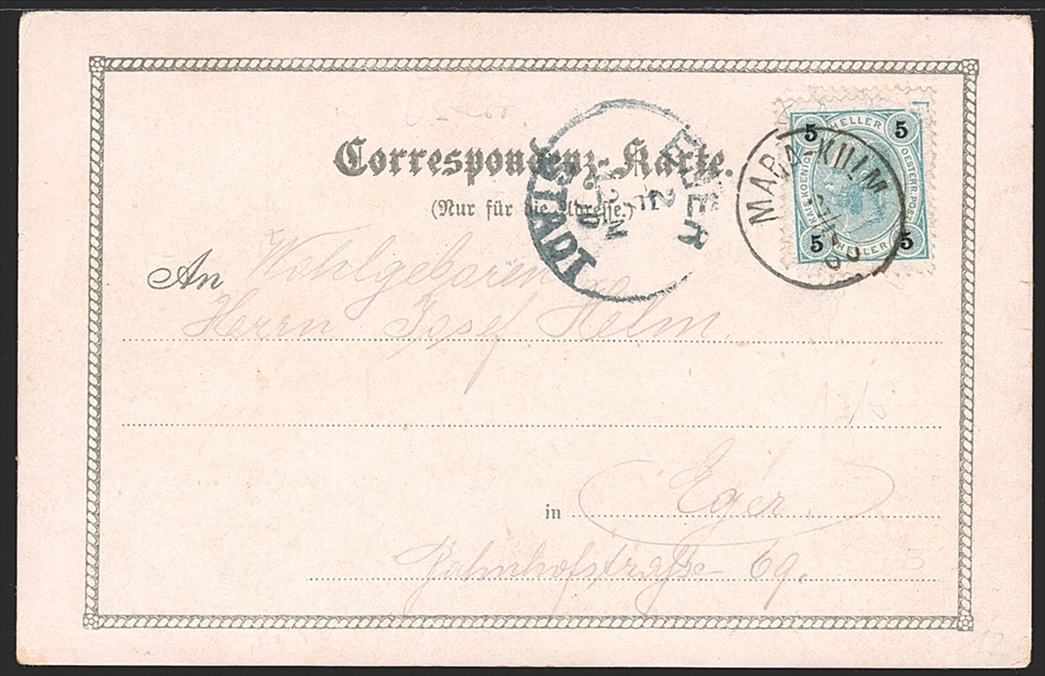 Correspondenz-Karte.
(Nur für die Adresse.)
EGER
STADT
MARIA-KULM
5 HELLER 5
KAIS. KOENIGL. OESTERR. POST
5 HELLER 5
An Wohlgeboren
Herrn Josef Helm.
in Eger
Bahnhofstraße 69.
B
12